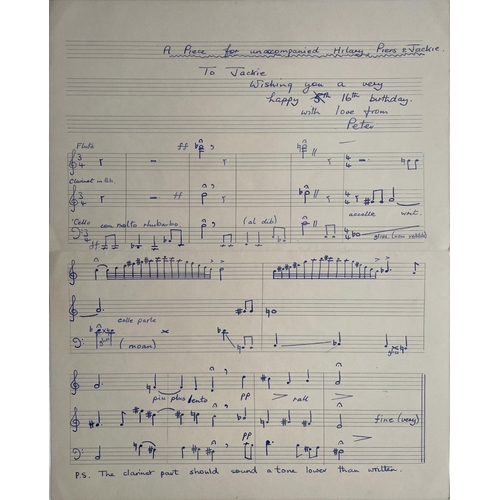 A Piece for unaccompanied Hilary, Piers & Jackie.
To Jackie
Wishing you a very
happy 16th birthday.
with love from
Peter
Flute ff
Clarinet in Bb. ff accelle writ.
'Cello con molto rhubarbo. (al dib) gliss. (non rubbib)
ff
colle parle
gliss (moan) gliss
piu plus lento pp > rall >
fine (very)
pp
P.S. The clarinet part should sound a tone lower than written.